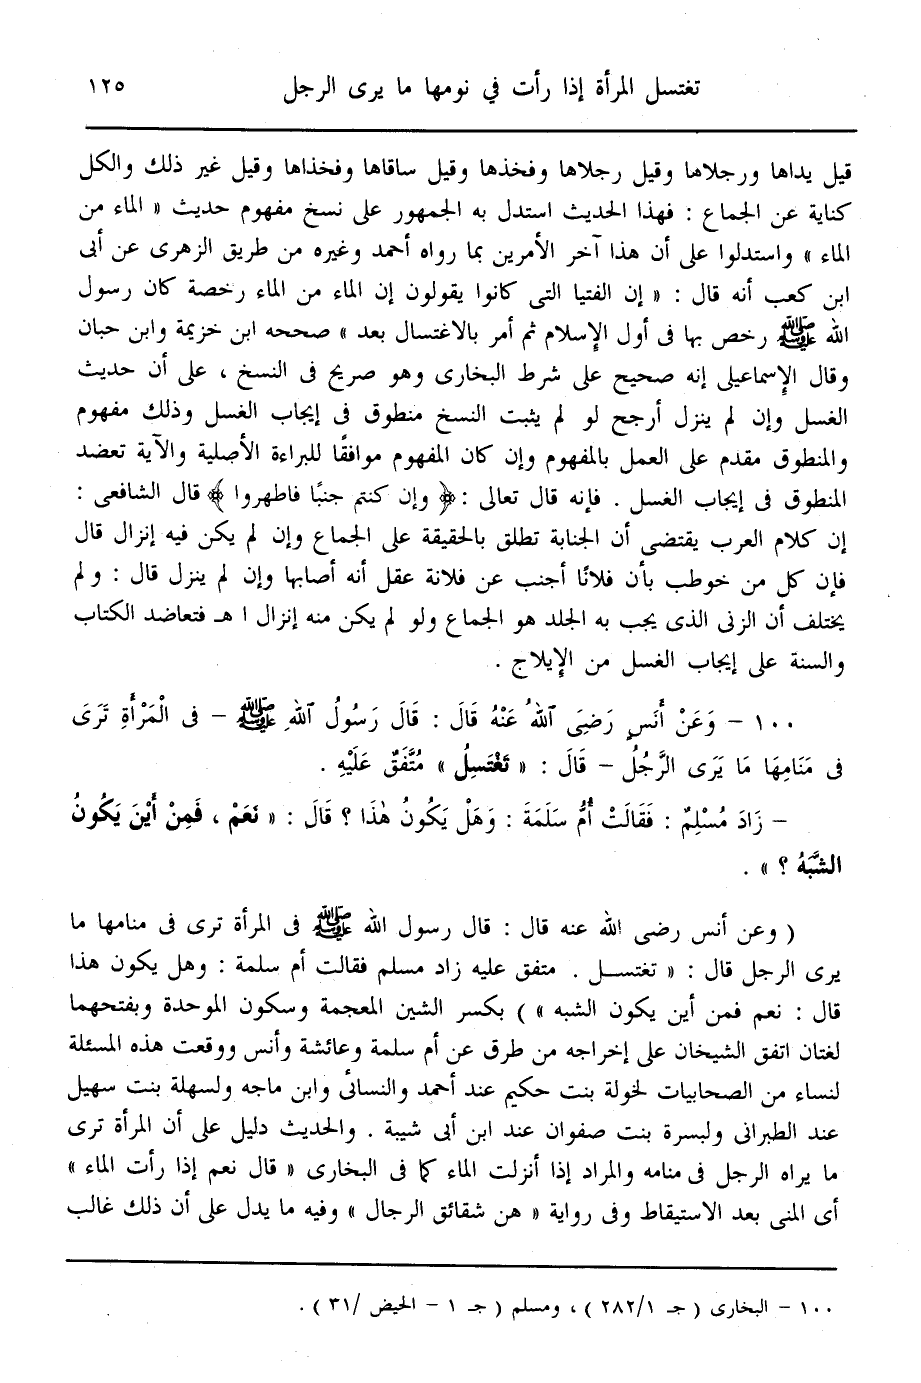 تغتسل المرأة إذا رأت في نومها ما يرى الرجل ١٢٥
قيل يداها ورجلاها وقيل رجلاها وفخذها وقيل ساقاها وفخذاها وقيل غير ذلك والكل
كناية عن الجماع : فهذا الحديث استدل به الجمهور على نسخ مفهوم حديث « الماء من
الماء » واستدلوا على أن هذا آخر الأمرين بما رواه أحمد وغيره من طريق الزهرى عن أبى
ابن كعب أنه قال : « إن الفتيا التى كانوا يقولون إن الماء من الماء رخصة كان رسول
الله ﷺ رخص بها فى أول الإسلام ثم أمر بالاغتسال بعد » صححه ابن خزيمة وابن حبان
وقال الإسماعيلى إنه صحيح على شرط البخارى وهو صريح فى النسخ ، على أن حديث
الغسل وإن لم ينزل أرجح لو لم يثبت النسخ منطوق فى إيجاب الغسل وذلك مفهوم
والمنطوق مقدم على العمل بالمفهوم وإن كان المفهوم موافقًا للبراءة الأصلية والآية تعضد
المنطوق فى إيجاب الغسل . فإنه قال تعالى : ﴿ وإن كنتم جنبًا فاطهروا ﴾ قال الشافعى :
إن كلام العرب يقتضى أن الجنابة تطلق بالحقيقة على الجماع وإن لم يكن فيه إنزال قال
فإن كل من خوطب بأن فلانًا أجنب عن فلانة عقل أنه أصابها وإن لم ينزل قال : ولم
يختلف أن الزنى الذى يجب به الجلد هو الجماع ولو لم يكن منه إنزال ا هـ فتعاضد الكتاب
والسنة على إيجاب الغسل من الإيلاج .
١٠٠ – وَعَنْ أَنَسٍ رَضِىَ ٱللهُ عَنْهُ قَالَ : قَالَ رَسُولُ ٱللهِ ﷺ – فى الْمَرْأَةِ تَرَى
فى مَنَامِهَا مَا يَرَى الرَّجُلُ – قَالَ : « تَغْتَسِلُ » مُتَّفَقٌ عَلَيْهِ .
– زَادَ مُسْلِمٌ : فَقَالَتْ أُمُّ سَلَمَةَ : وَهَلْ يَكُونُ هٰذَا ؟ قَالَ : « نَعَمْ ، فَمِنْ أَيْنَ يَكُونُ
الشَّبَهُ ؟ » .
( وعن أنس رضى الله عنه قال : قال رسول الله ﷺ فى المرأة ترى فى منامها ما
يرى الرجل قال : « تغتسل . متفق عليه زاد مسلم فقالت أم سلمة : وهل يكون هذا
قال : نعم فمن أين يكون الشبه » ) بكسر الشين المعجمة وسكون الموحدة وبفتحهما
لغتان اتفق الشيخان على إخراجه من طرق عن أم سلمة وعائشة وأنس ووقعت هذه المسئلة
لنساء من الصحابيات لخولة بنت حكيم عند أحمد والنسائى وابن ماجه ولسهلة بنت سهيل
عند الطبرانى ولبسرة بنت صفوان عند ابن أبى شيبة . والحديث دليل على أن المرأة ترى
ما يراه الرجل فى منامه والمراد إذا أنزلت الماء كما فى البخارى « قال نعم إذا رأت الماء »
أى المنى بعد الاستيقاظ وفى رواية « هن شقائق الرجال » وفيه ما يدل على أن ذلك غالب
١٠٠ – البخارى ( جـ ٢٨٢/١ ) ، ومسلم ( جـ ١ – الحيض /٣١ ) .